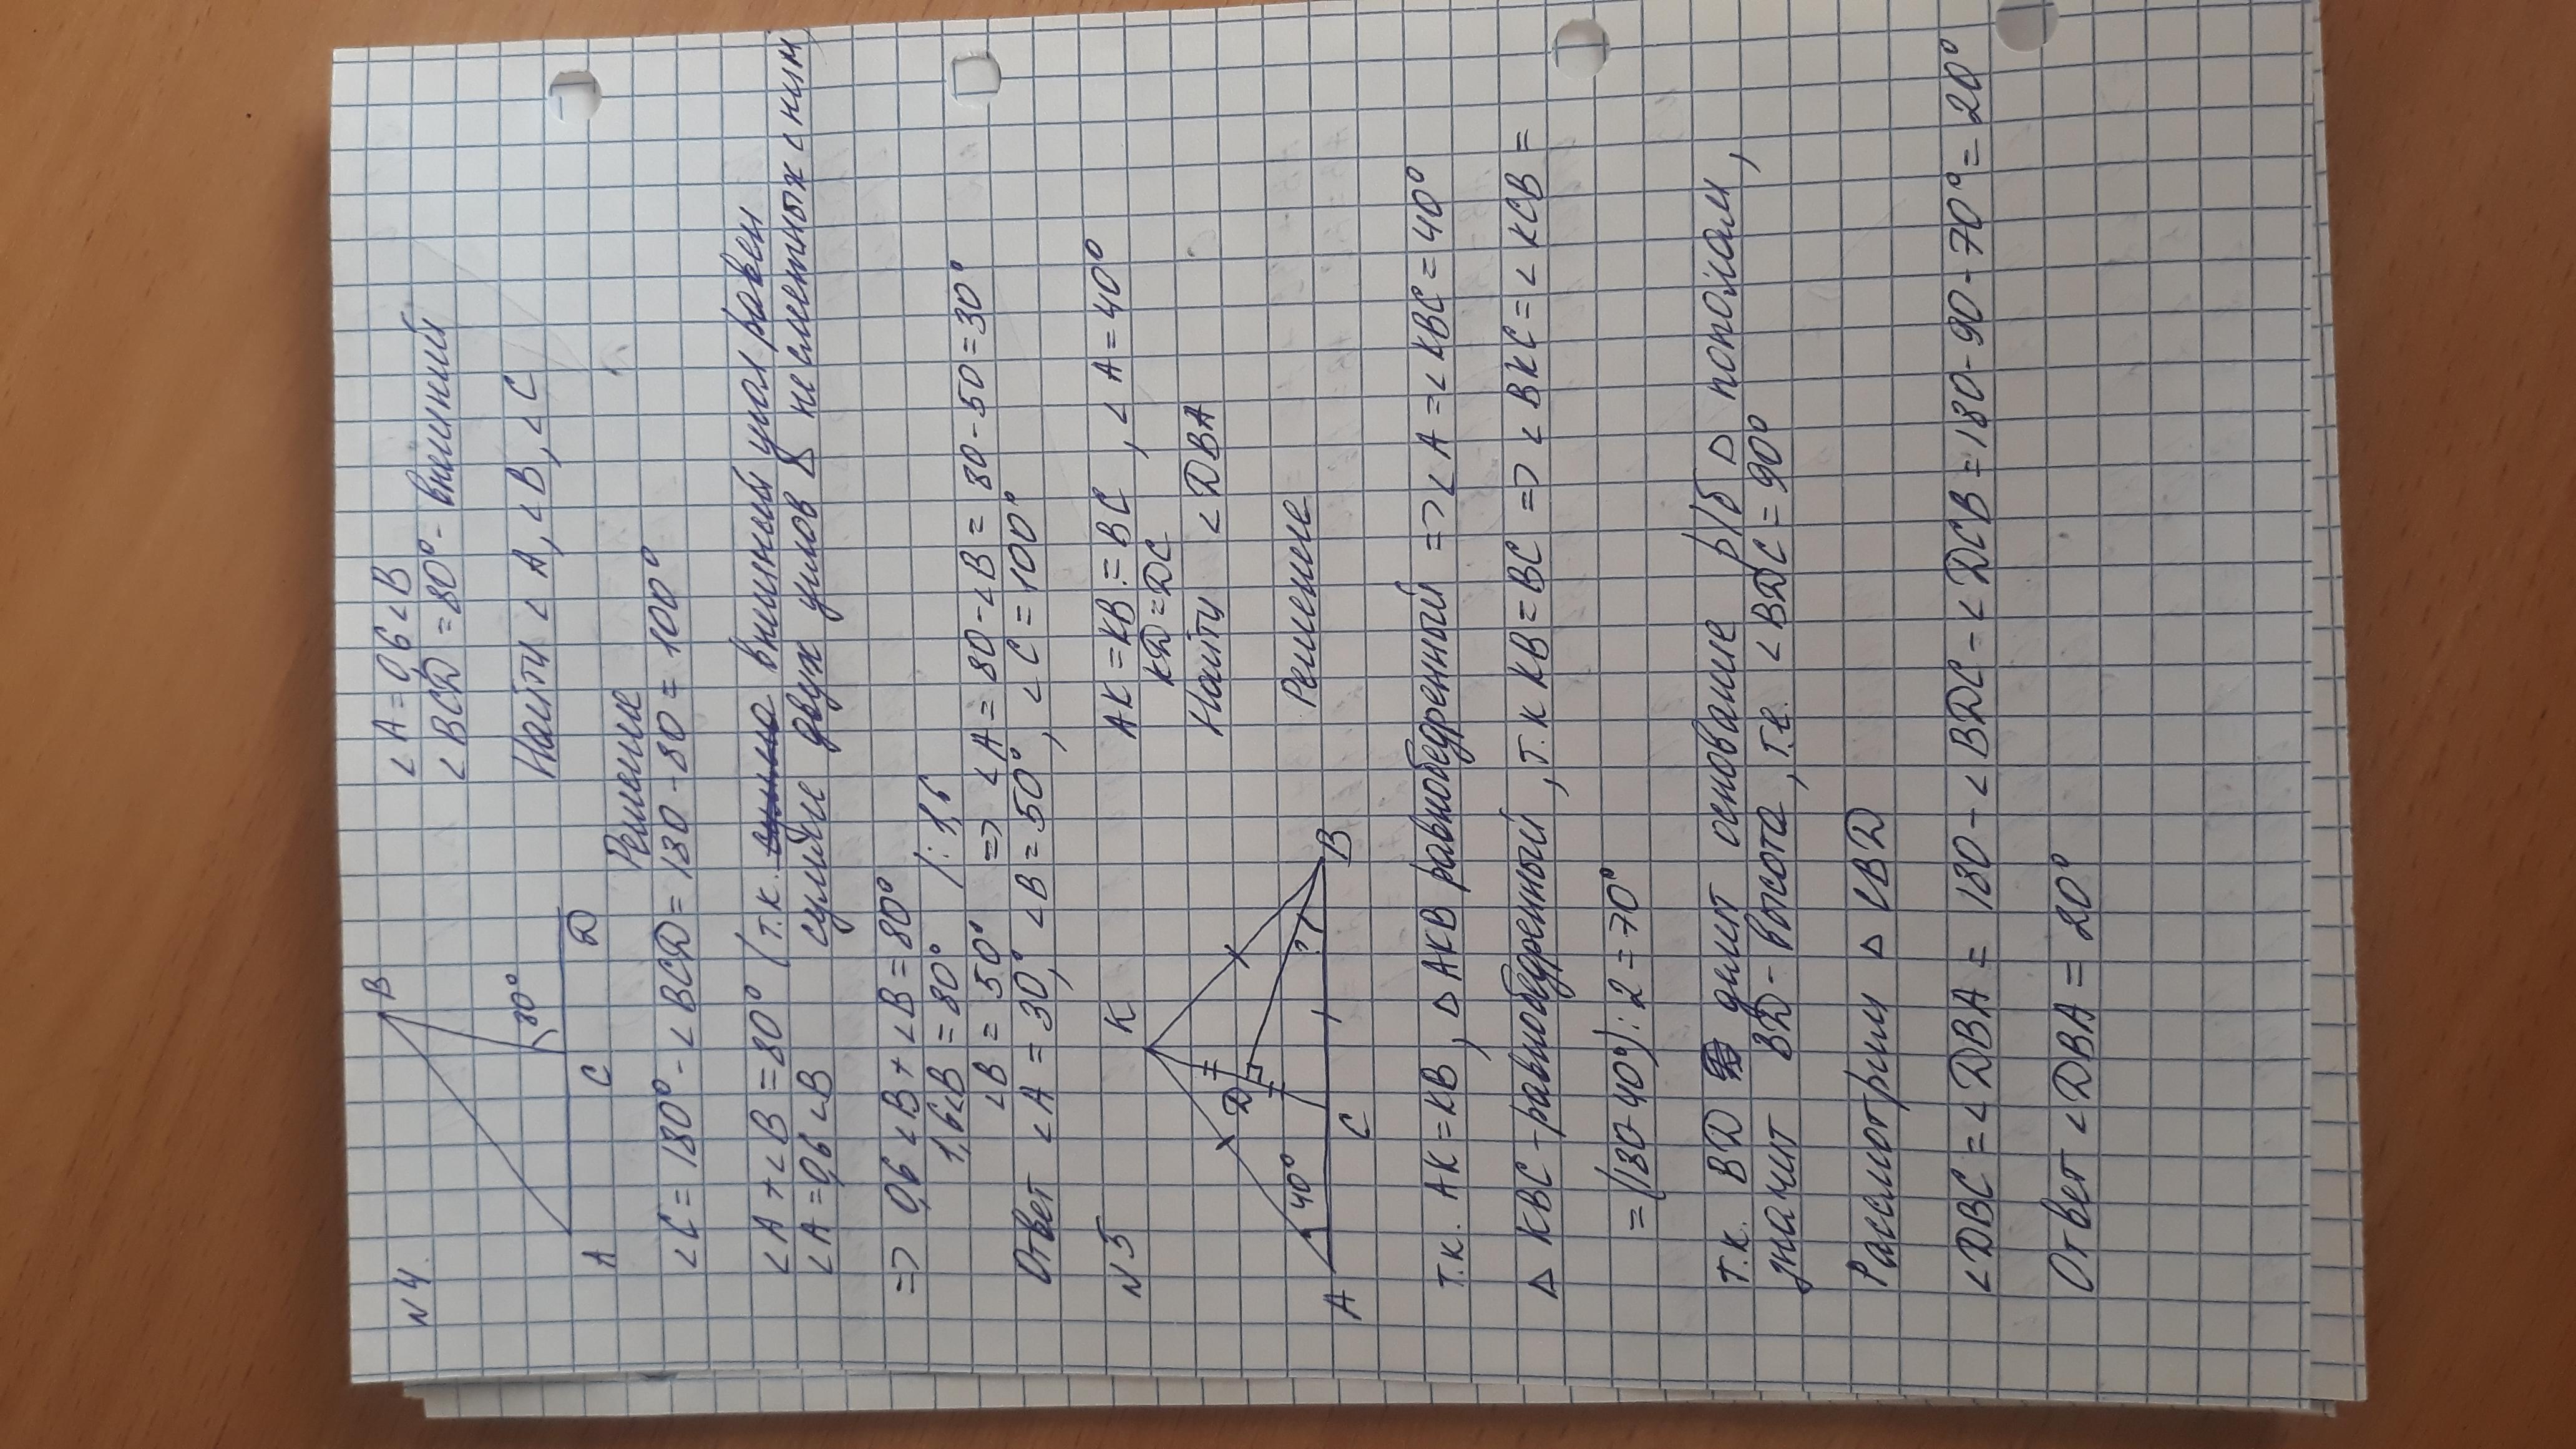 N4.
B
80°
A C D
∠A = 0,6∠B
∠BCD = 80° - внешний
Найти ∠A, ∠B, ∠C
Решение
∠C = 180° - ∠BCD = 180 - 80 = 100°
∠A + ∠B = 80° (т.к. внешний угол равен
∠A = 0,6∠B сумме двух углов не смежных с ним)
=> 0,6∠B + ∠B = 80°
1,6∠B = 80° /: 1,6
∠B = 50° => ∠A = 80 - ∠B = 80 - 50 = 30°
Ответ ∠A = 30°, ∠B = 50°, ∠C = 100°
N5
K
D
40° ?
A C B
AK = KB = BC, ∠A = 40°
KD = DC
Найти ∠DBA
Решение
т.к. AK = KB, ΔAKB равнобедренный => ∠A = ∠KBC = 40°
ΔKBC - равнобедренный, т.к KB = BC => ∠BKC = ∠KCB =
= (180-40°):2 = 70°
т.к. BD делит основание р/б Δ пополам,
значит BD - высота, т.е. ∠BDC = 90°
Рассмотрим ΔCBD
∠DBC = ∠DBA = 180 - ∠BDC - ∠DCB = 180 - 90 - 70° = 20°
Ответ ∠DBA = 20°